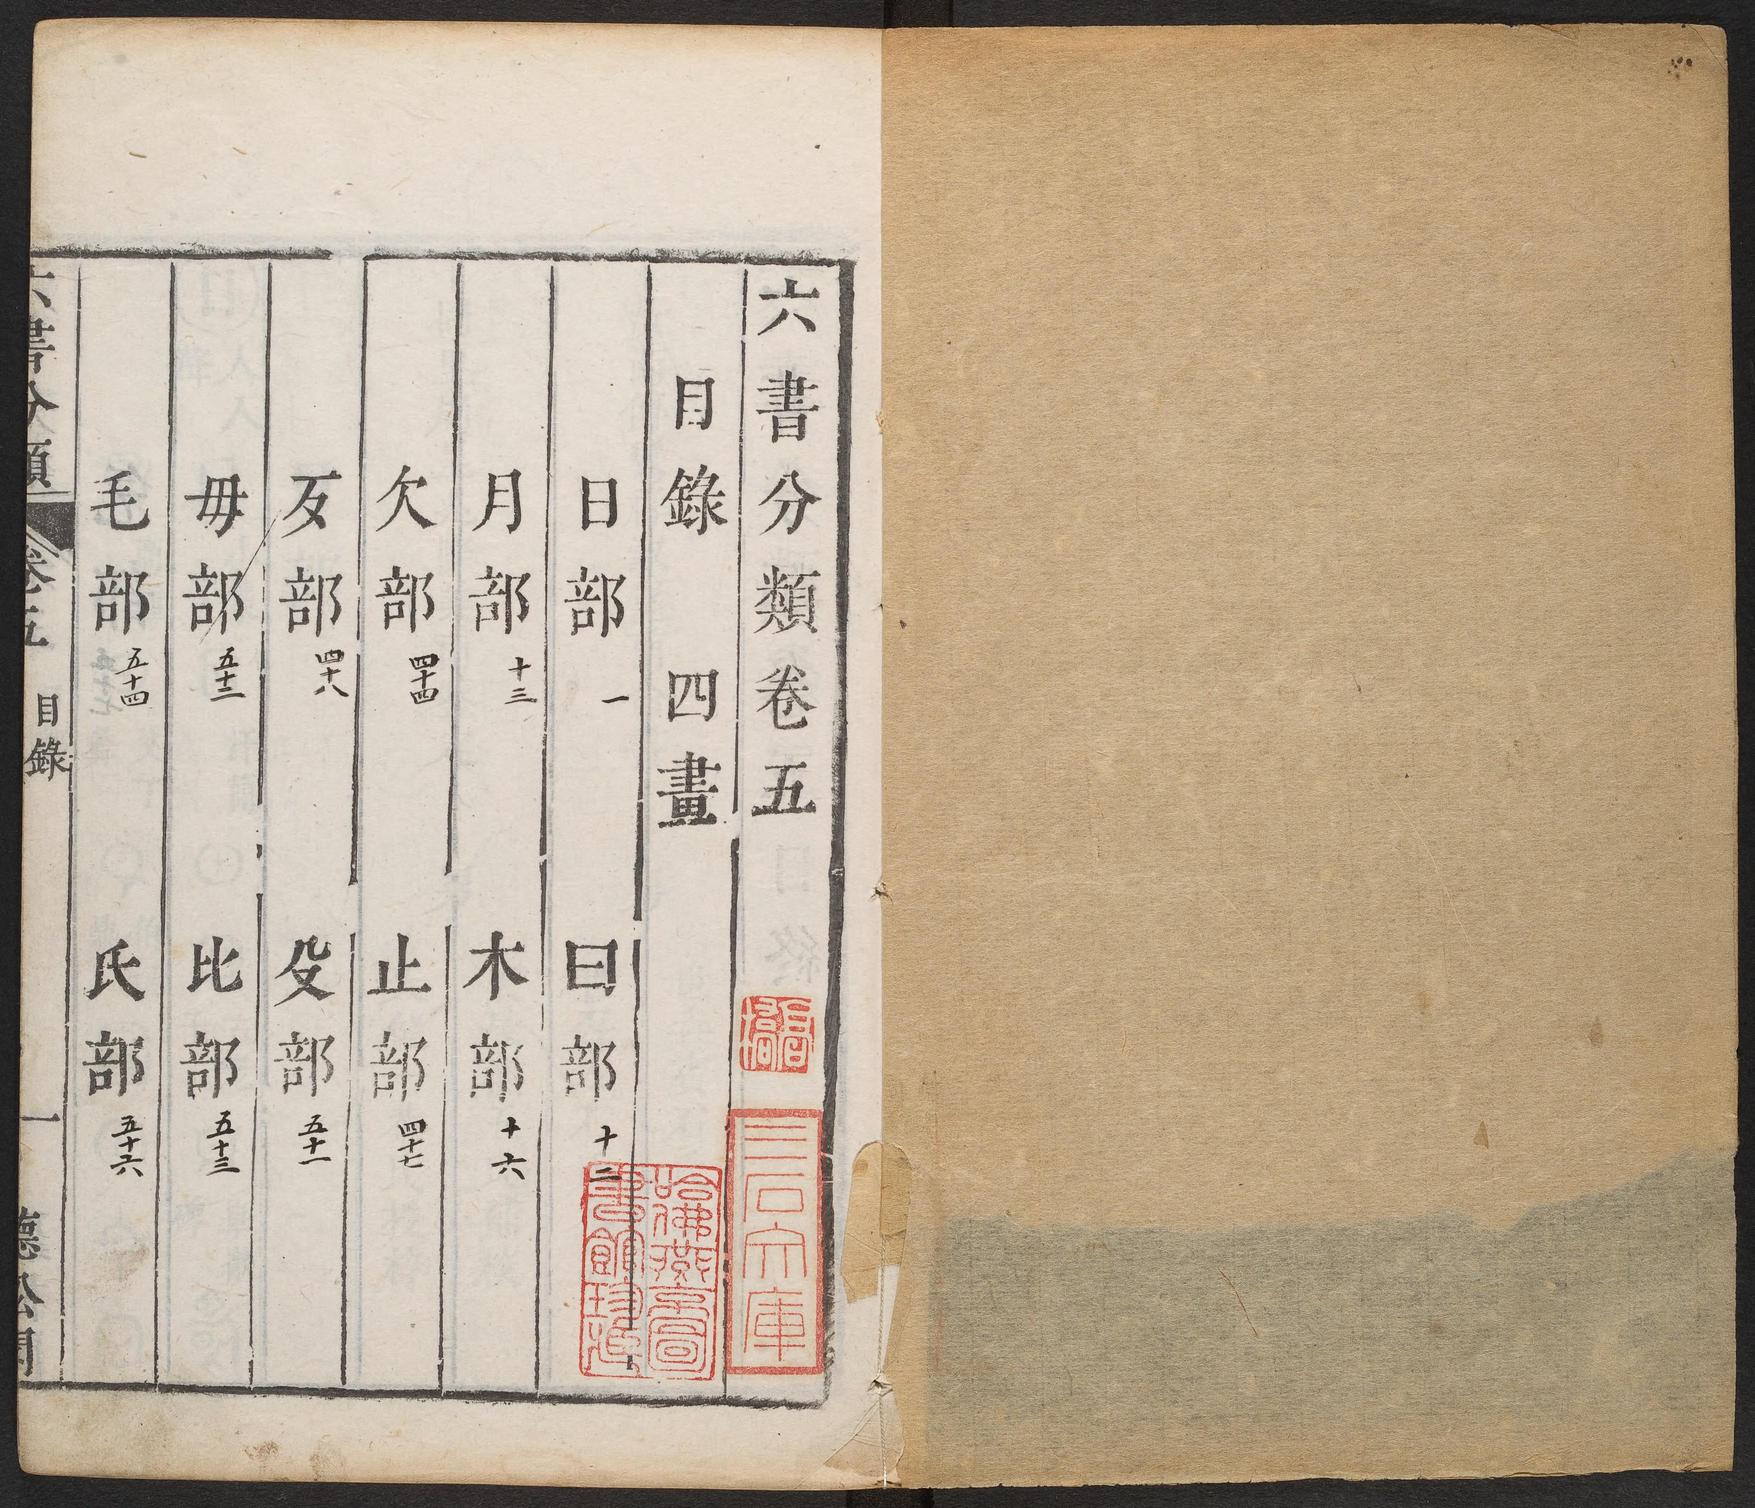 六書分類卷五
目錄 四畫
日部 一 曰部 十二
月部 十三 木部 十六
欠部 四十四 止部 四十七
歹部 四十八 殳部 五十一
毋部 五十三 比部 五十三
毛部 五十四 氏部 五十六
六書分類 卷五 目錄 一
三石文庫
哈佛燕京